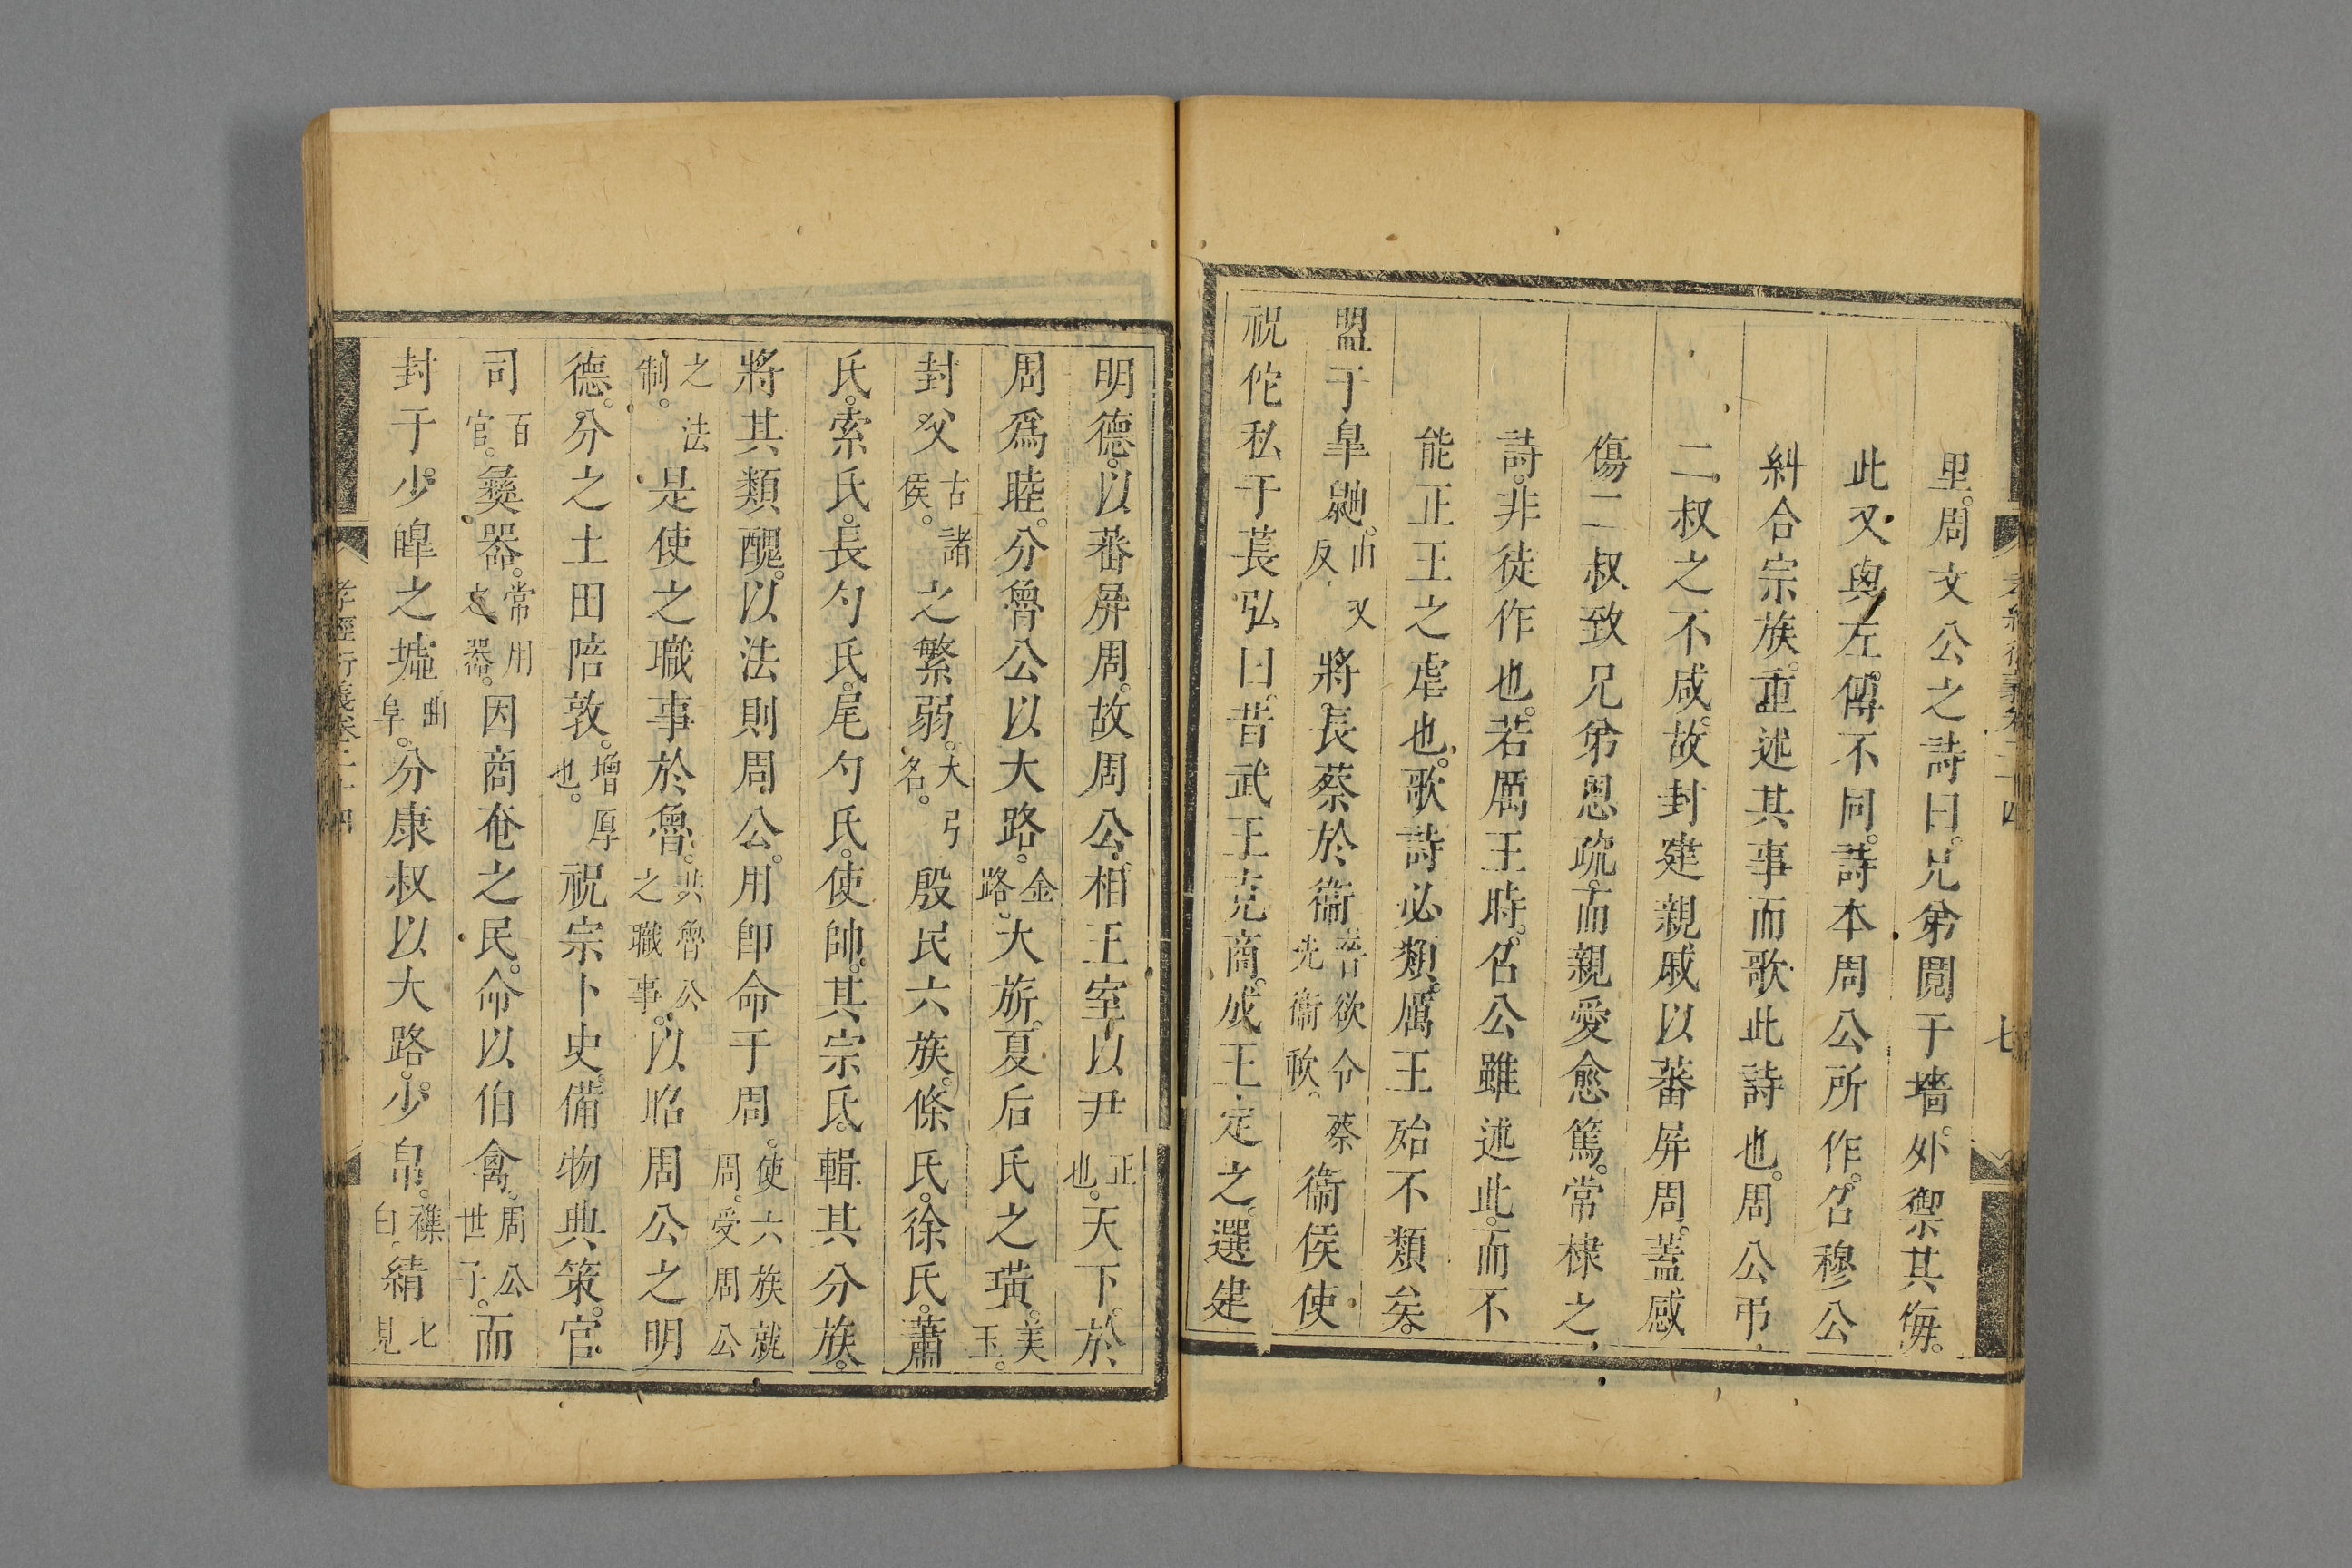 里。周文公之詩曰。兄弟鬩于墻。外禦其侮。
此又與左。傳不同。詩本周公所作。召穆公
糾合宗族。重述其事而歌此詩也。周公弔
二叔之不咸。故封建親戚以蕃屏周。蓋感
傷二叔致兄弟恩疏。而親愛愈篤。常棣之
詩。非徒作也。若厲王時。召公雖述此。而不
能正王之虐也。歌詩必類。厲王殆不類矣。
盟于皐鼬。由又反將長蔡於衞萇欲令蔡先衞歃。衞侯使
祝佗私于萇弘曰。昔武王克商。成王定之。選建
明德。以蕃屏周。故周公。相王室以尹正也。天下。於
周爲睦。分魯公以大路。金路。大旂。夏后氏之璜。美玉。
封父古諸侯。之繁弱。大弓名。殷民六族。條氏。徐氏。蕭
氏。索氏。長勺氏。尾勺氏。使帥。其宗氏。輯其分族。
將其類醜。以法則周公。用卽命于周。使六族就周。受周公
之法制。是使之職事於魯。共魯公之職事。以昭周公之明
德。分之土田陪敦。增厚也。祝宗卜史。備物典策。官
司百官。彝器。常用之器。因商奄之民。命以伯禽。周公世子。而
封于少。皥之墟曲阜。分康叔以大路。少帛。襍白。綪七見
孝經衍義卷二十四
孝經衍義卷二十四
七